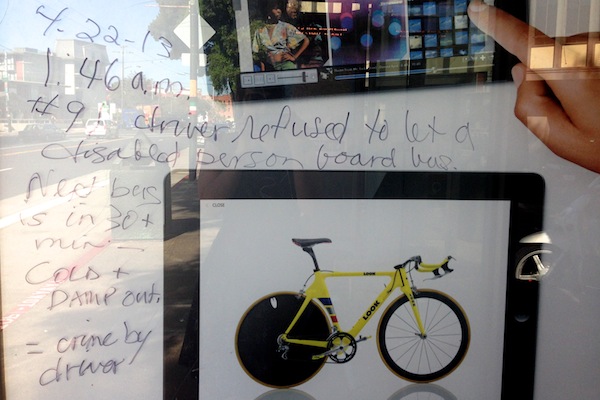 4-22-13
1:46 a.m.
#9, driver refused to let a
disabled person board bus.
Next bus
is in 30+
min —
COLD +
DAMP out.
= crime by
driver
CLOSE
LOOK
LOOK